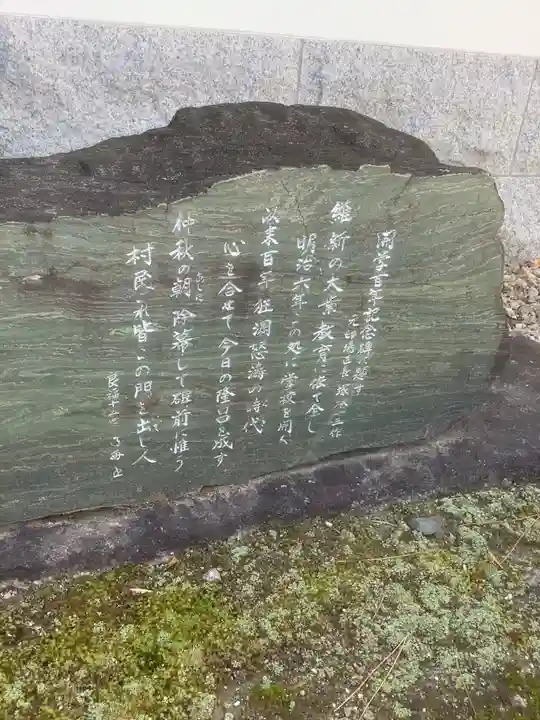 開学百年記念碑に題す
元印場區長 作
維新の大業教育に依て全し
明治六年この処に学校を開く
以来百年狂瀾怒濤の時代
心を合せて今日の隆昌を成す
仲秋の朝除幕して碑前に惟う
あした
村民これ皆この門を出し人